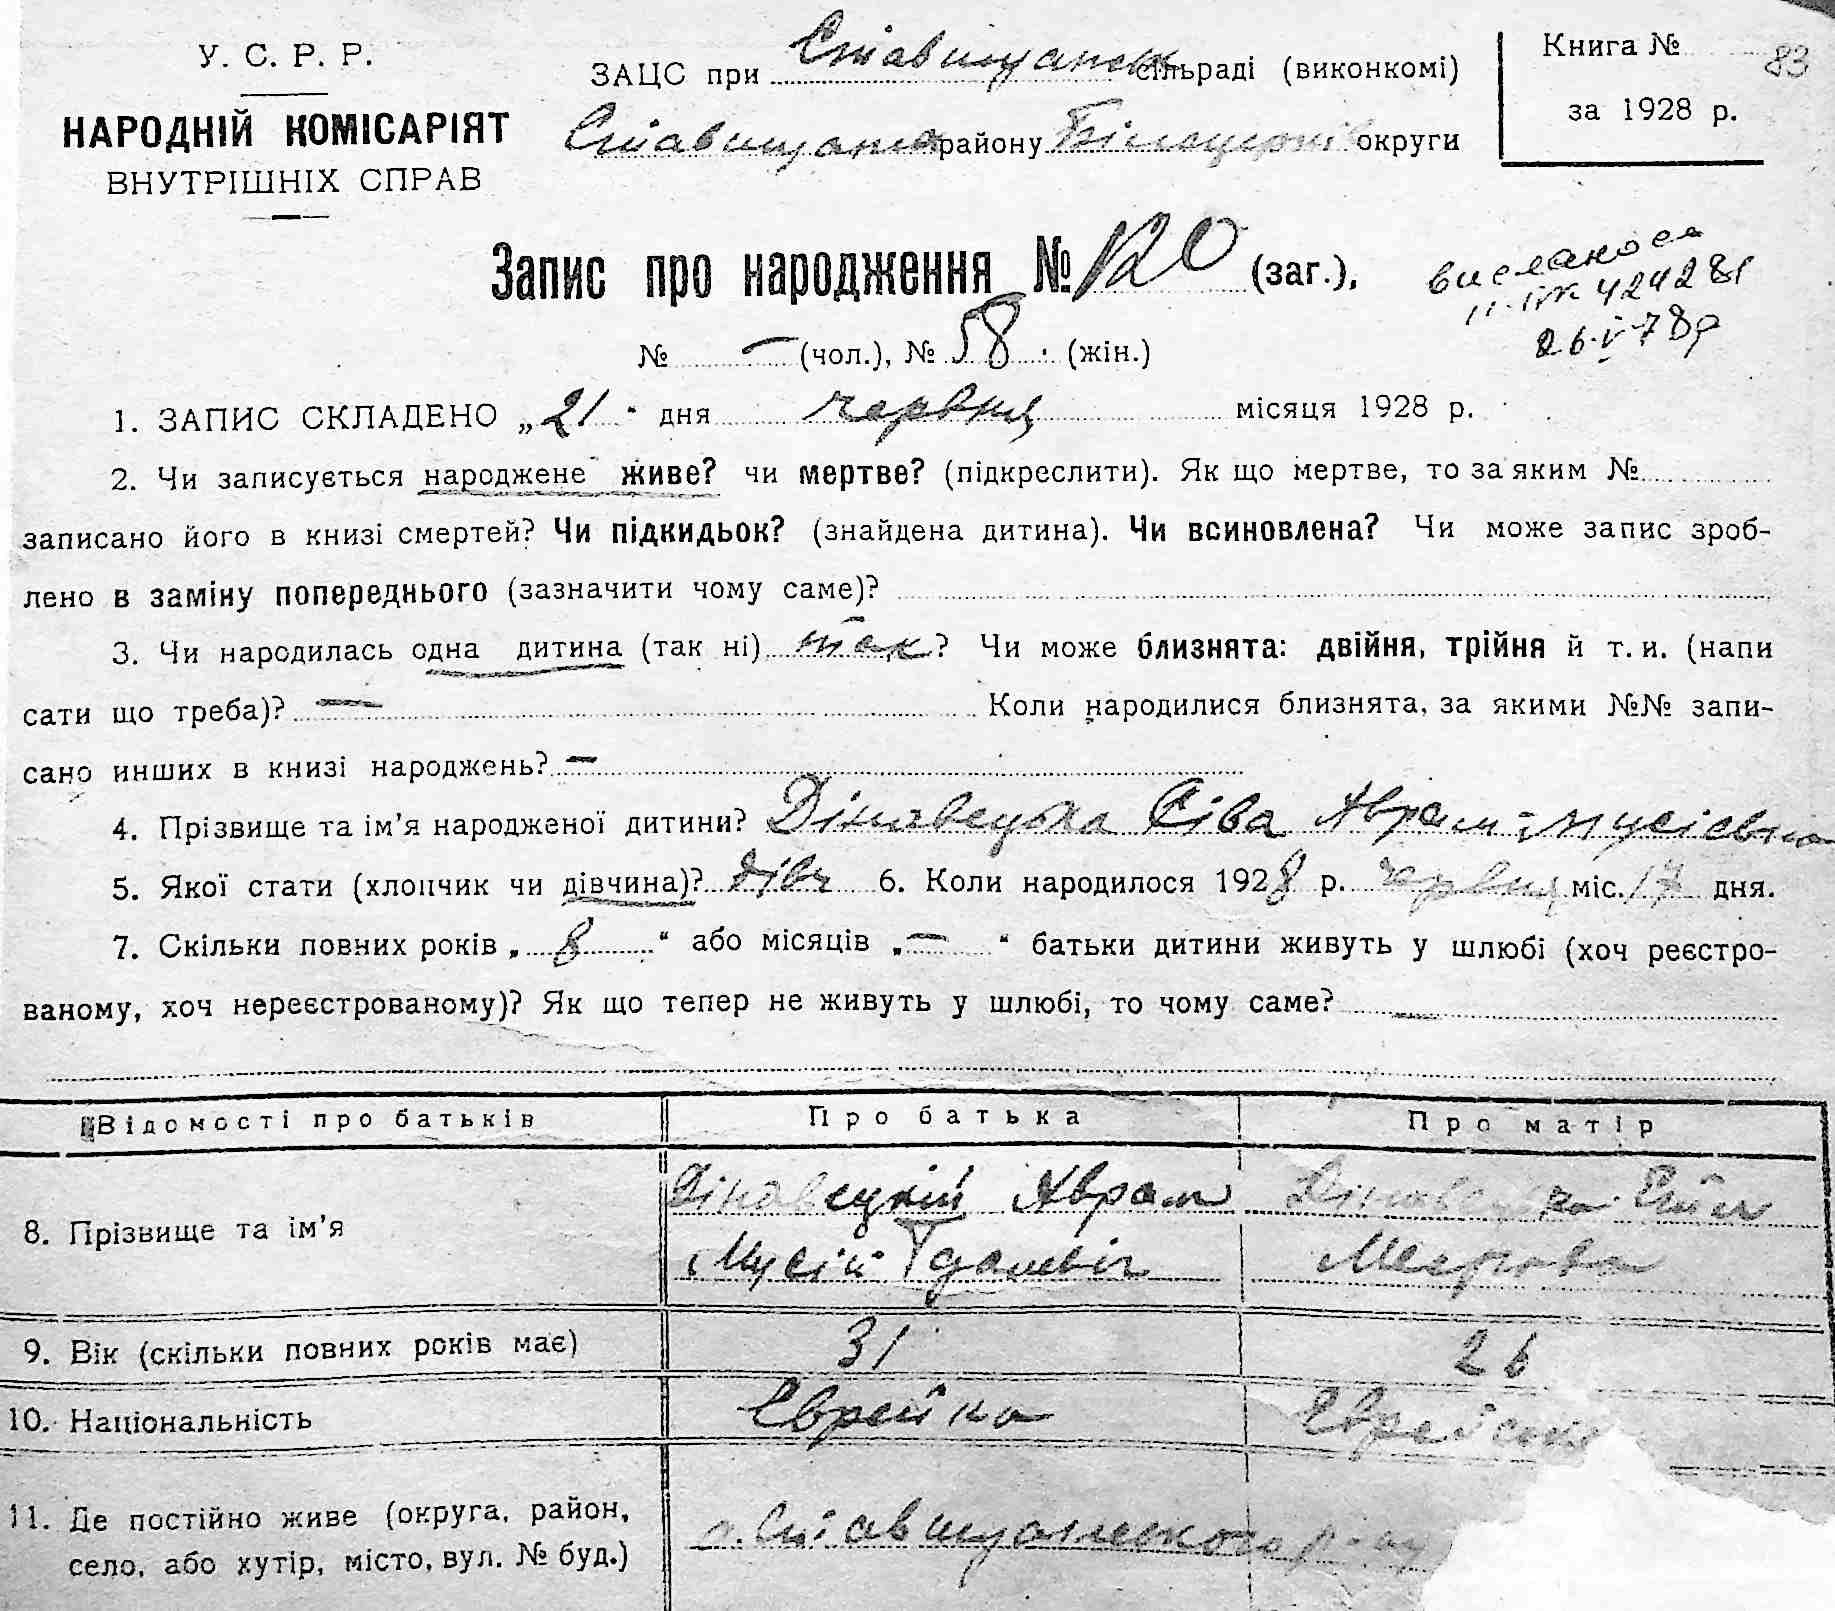 У. С. Р. Р.
НАРОДНІЙ КОМІСАРІЯТ
ВНУТРІШНІХ СПРАВ
ЗАЦС при Ставищанськ сільраді (виконкомі)
Ставищанськ району Білоцерків округи
Книга № 83
за 1928 р.
Запис про народження № 120 (заг.),
вислано
424281
26.V-78р
№ — (чол.), № 58 (жін.)
1. ЗАПИС СКЛАДЕНО „21" дня червня місяця 1928 р.
2. Чи записується народжене живе? чи мертве? (підкреслити). Як що мертве, то за яким №
записано його в книзі смертей? Чи підкидьок? (знайдена дитина). Чи всиновлена? Чи може запис зроб-
лено в заміну попереднього (зазначити чому саме)?
3. Чи народилась одна дитина (так ні) так? Чи може близнята: двійня, трійня й т. и. (напи
сати що треба)? — Коли народилися близнята, за якими №№ запи-
сано инших в книзі народжень? —
4. Прізвище та ім'я народженої дитини? Діновецька Сіва Аврам-Мусієвна
5. Якої стати (хлопчик чи дівчина)? дівч 6. Коли народилося 1928 р. червня міс. 17 дня.
7. Скільки повних років „8" або місяців „—" батьки дитини живуть у шлюбі (хоч реєстро-
ваному, хоч нереєстрованому)? Як що тепер не живуть у шлюбі, то чому саме? —
Відомості про батьків Про батька Про матір
8. Прізвище та ім'я Діновецкий Аврам Діновецька
Мусій
9. Вік (скільки повних років має) 31 26
10. Національність Єврейка Єврейськ
11. Де постійно живе (округа, район,
село, або хутір, місто, вул. № буд.) Ставищанського р-ну